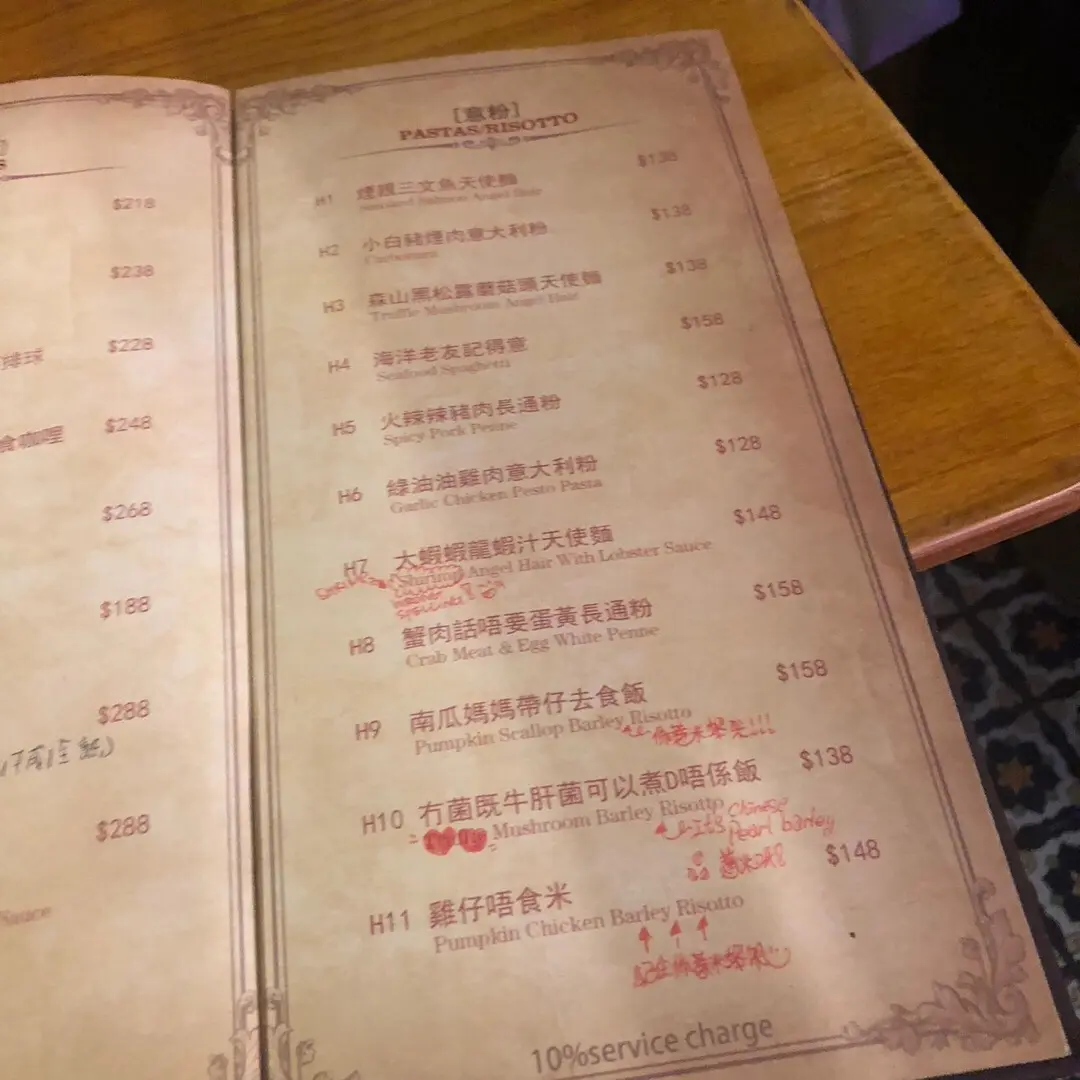 $218
$238
排球 $228
食咖哩 $248
$268
$188
$288
$288
Sauce
[意粉]
PASTAS/RISOTTO
H1 煙銀三文魚天使麵 $138
Smoked Salmon Angel Hair
H2 小白豬煙肉意大利粉 $138
Carbonara
H3 森山黑松露蘑菇頭天使麵 $138
Truffle Mushroom Angel Hair
H4 海洋老友記得意 $158
Seafood Spaghetti
H5 火辣辣豬肉長通粉 $128
Spicy Pork Penne
H6 綠油油雞肉意大利粉 $128
Garlic Chicken Pesto Pasta
H7 大蝦蝦龍蝦汁天使麵 $148
Shrimp Angel Hair With Lobster Sauce
H8 蟹肉話唔要蛋黃長通粉 $158
Crab Meat & Egg White Penne
H9 南瓜媽媽帶仔去食飯 $158
Pumpkin Scallop Barley Risotto
!!!
H10 冇菌既牛肝菌可以煮D唔係飯 $138
Mushroom Barley Risotto
It's Chinese
Pearl barley
H11 雞仔唔食米 $148
Pumpkin Chicken Barley Risotto
10%service charge